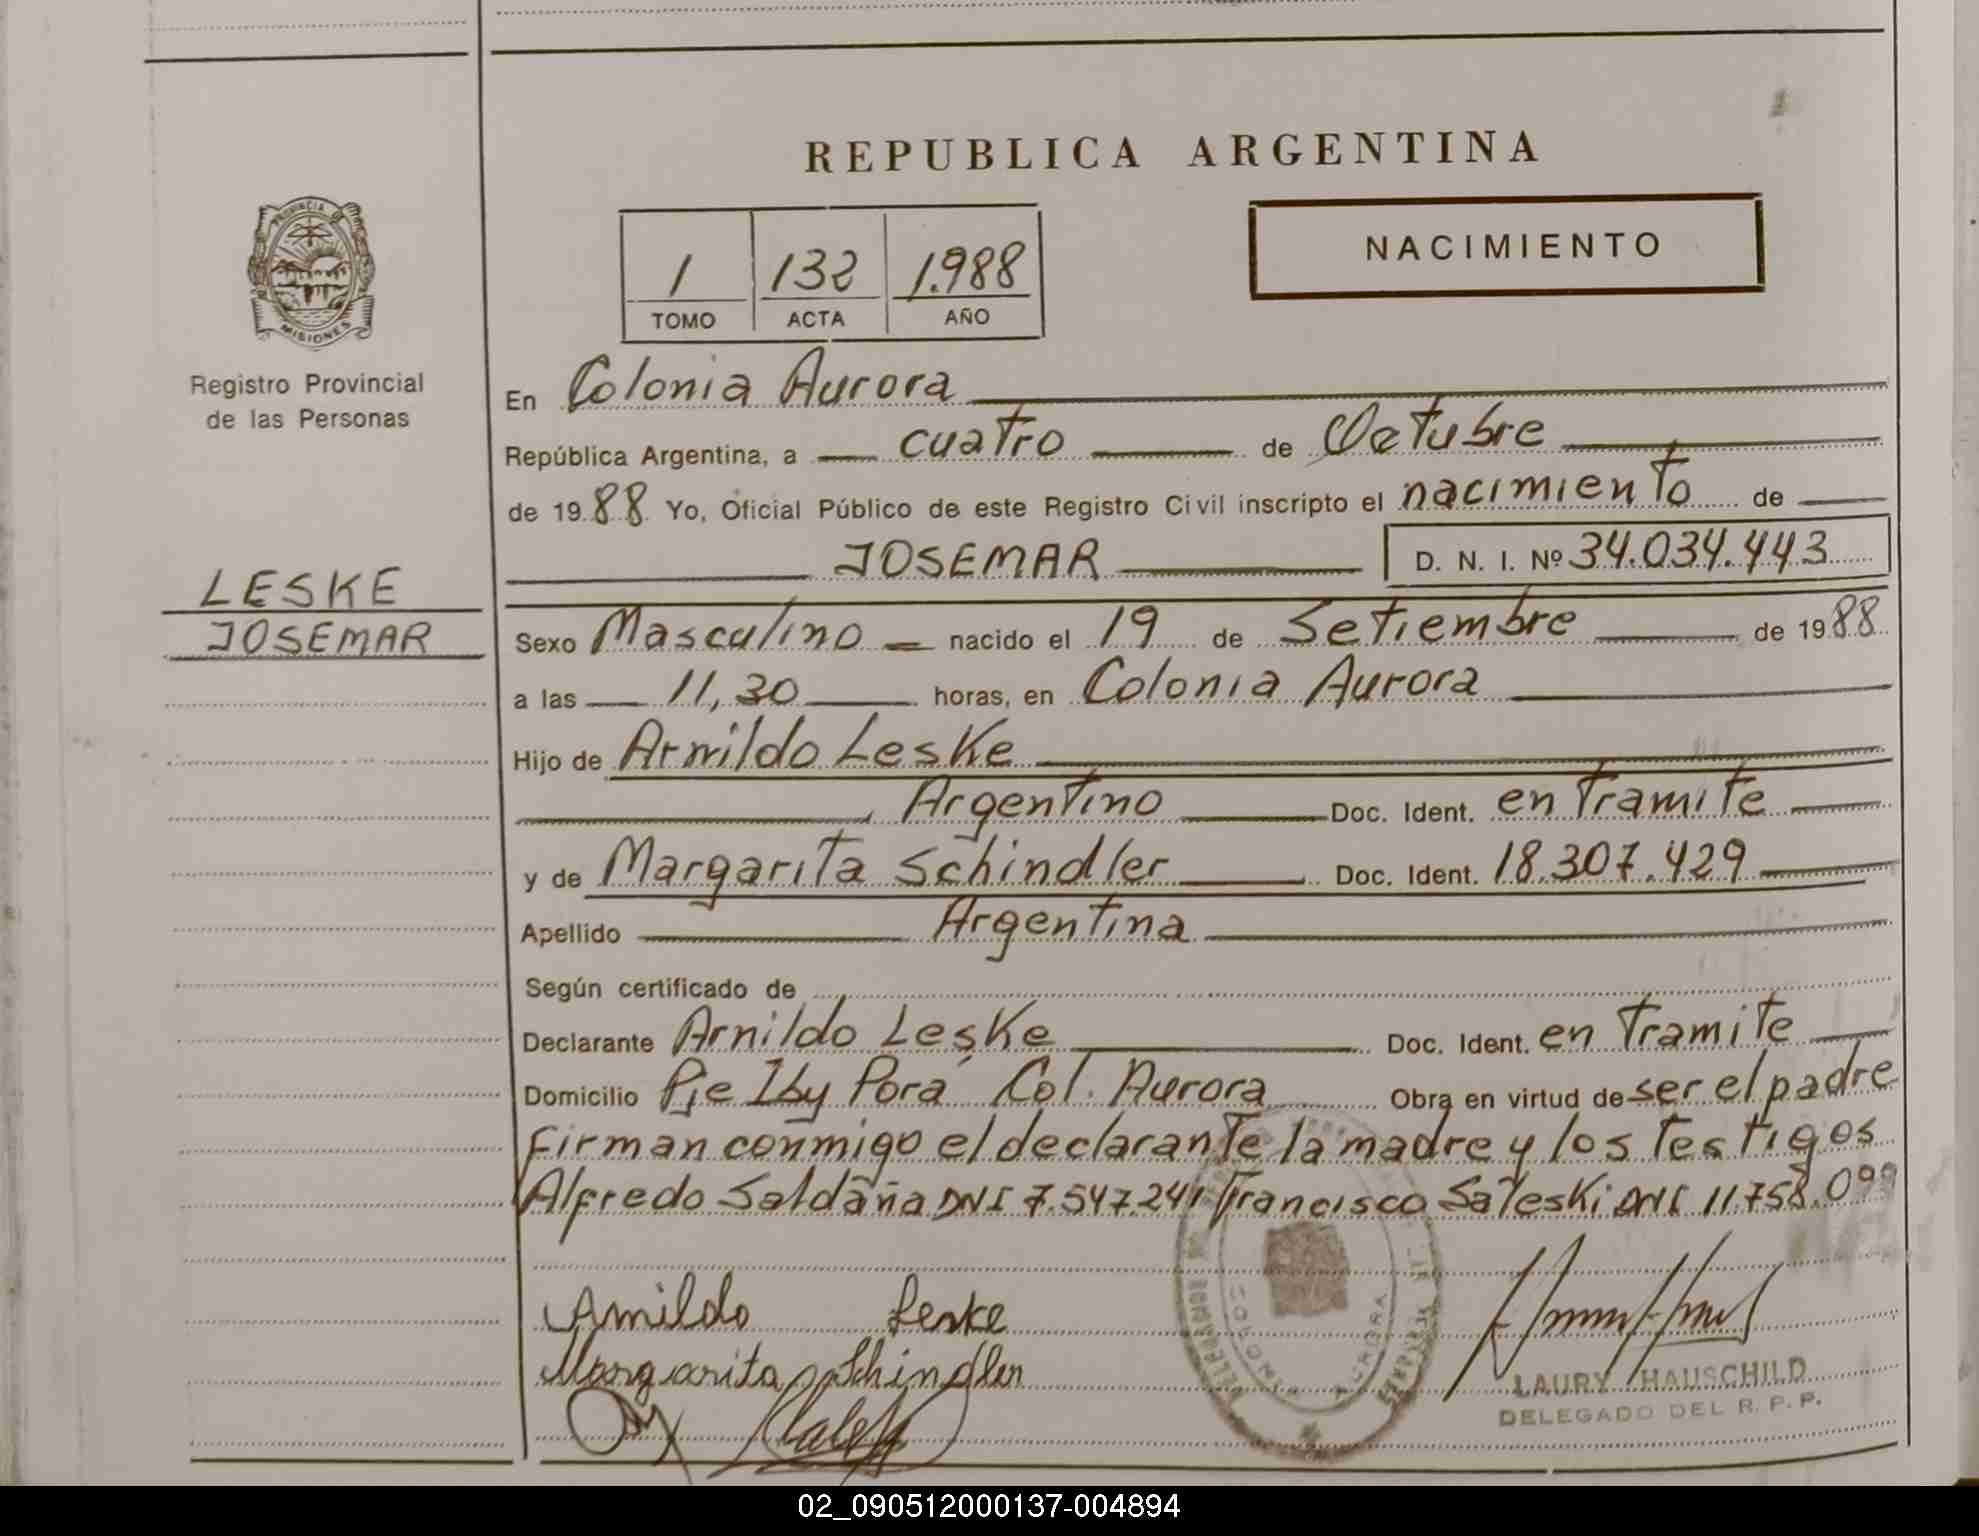 REPUBLICA ARGENTINA
PROVINCIA DE
MISIONES
Registro Provincial
de las Personas
LESKE
JOSEMAR
1 132 1.988
TOMO ACTA AÑO
NACIMIENTO
En Colonia Aurora
República Argentina, a cuatro de Octubre
de 1988 Yo, Oficial Público de este Registro Civil inscripto el nacimiento de
JOSEMAR D. N. I. Nº 34.034.443
Sexo Masculino nacido el 19 de Setiembre de 1988
a las 11,30 horas, en Colonia Aurora
Hijo de Arnildo Leske
Argentino Doc. Ident. en tramite
y de Margarita Schindler Doc. Ident. 18.307.429
Apellido Argentina
Según certificado de
Declarante Arnildo Leske Doc. Ident. en tramite
Domicilio Pje Iby Porá Col. Aurora Obra en virtud de ser el padre
Firman conmigo el declarante la madre y los testigos
Alfredo Saldaña DNI 7.547.241 Francisco Sateski DNI 11.758.099
Arnildo Leske
Margarita Schindler
COLONIA AURORA
LAURY HAUSCHILD
DELEGADO DEL R. P. P.
02_090512000137-004894